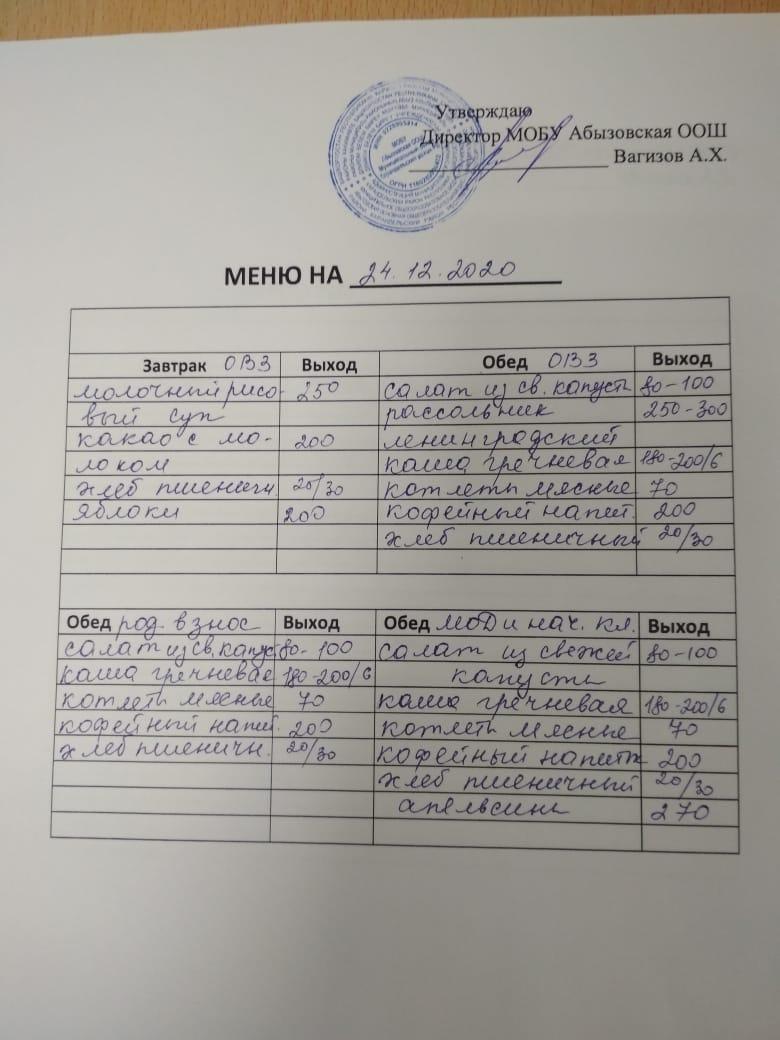 Утверждаю
Директор МОБУ Абызовская ООШ
Вагизов А.Х.
МОБУ
Абызовская ООШ
МЕНЮ НА 24.12.2020
Завтрак ОВЗ Выход Обед ОВЗ Выход
молочный рисо- 250 салат из св. капусты 80-100
вый суп рассольник 250-300
какао с мо- 200 ленинградский
локом каша гречневая 180-200/6
хлеб пшеничн. 20/30 котлеты мясные 70
яблоки 200 кофейный напит. 200
хлеб пшеничный 20/30
Обед род. взнос Выход Обед МОД и нач. кл. Выход
салат из св. капус 80-100 салат из свежей 80-100
каша гречневая 180-200/6 капусты
котлеты мясные 70 каша гречневая 180-200/6
кофейный напит. 200 котлеты мясные 70
хлеб пшеничн. 20/30 кофейный напиток 200
хлеб пшеничный 20/30
апельсины 270